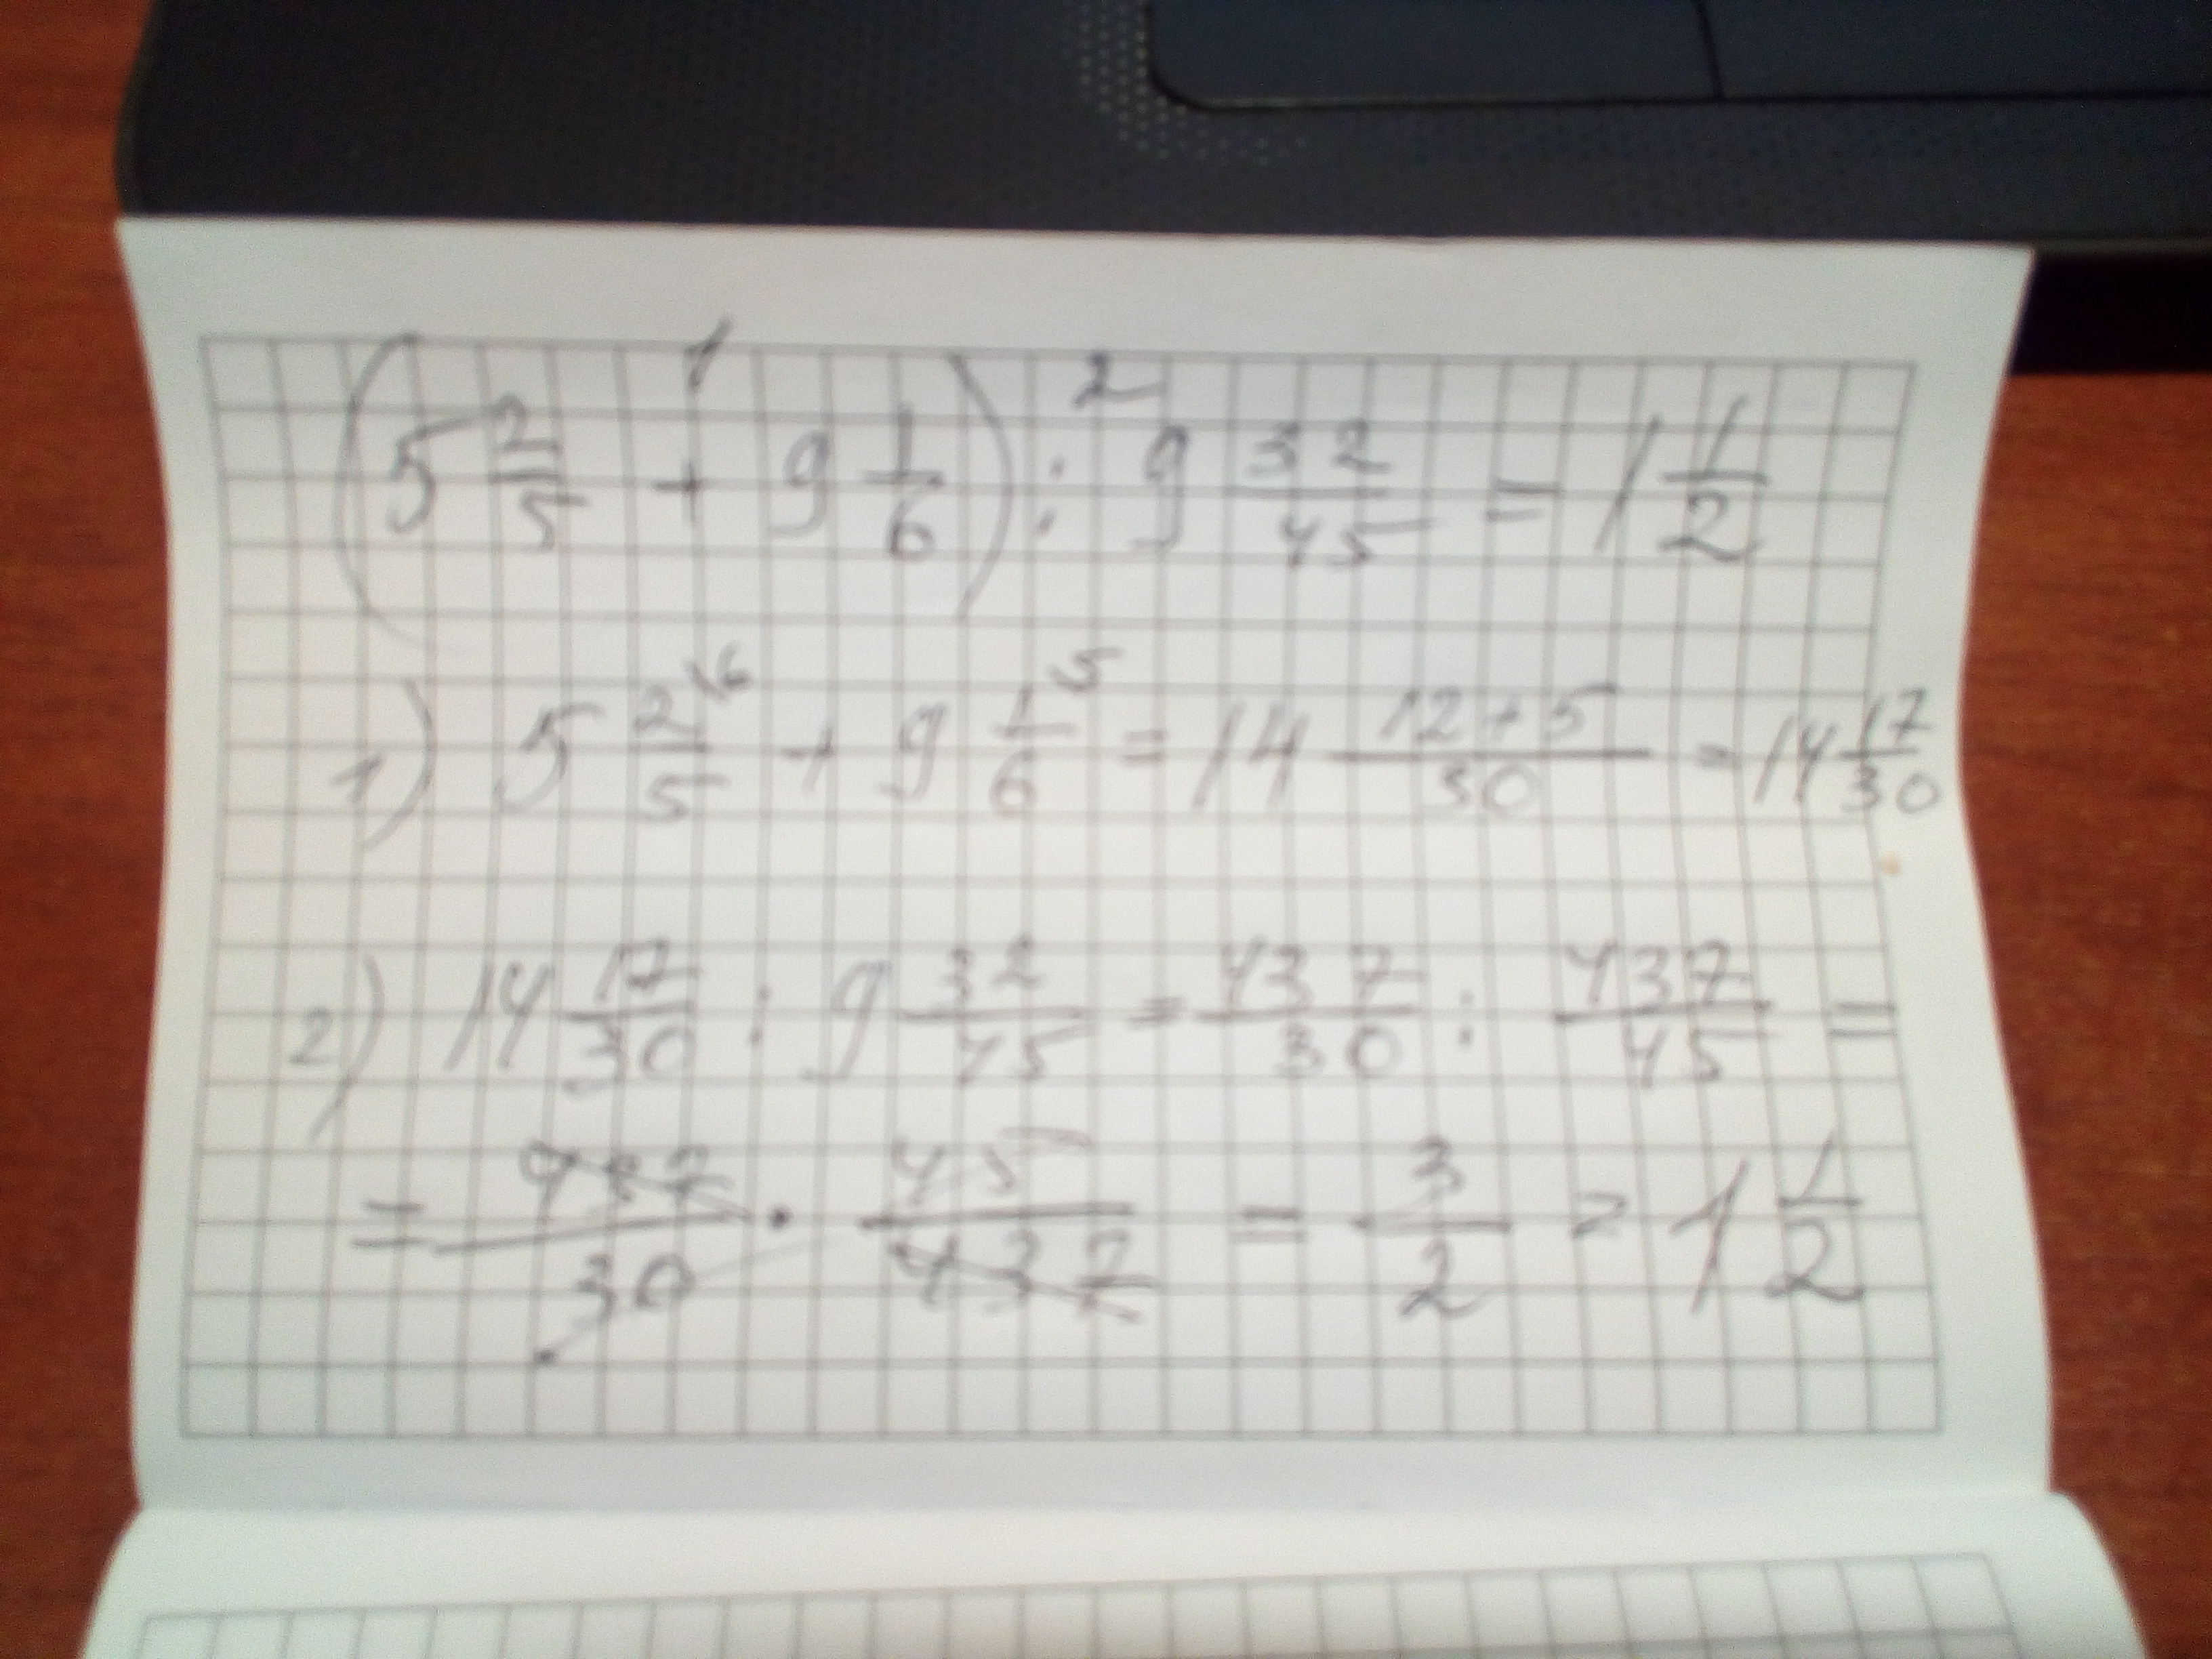 (5 2/5 + 9 1/6) : 9 32/45 = 1 1/2
1 2
1) 5 2/5 \6 + 9 1/6 5 = 14 12+5/30 = 14 17/30
2) 14 17/30 : 9 32/45 = 437/30 : 437/45 =
= 437/30 · 45/437 = 3/2 = 1 1/2